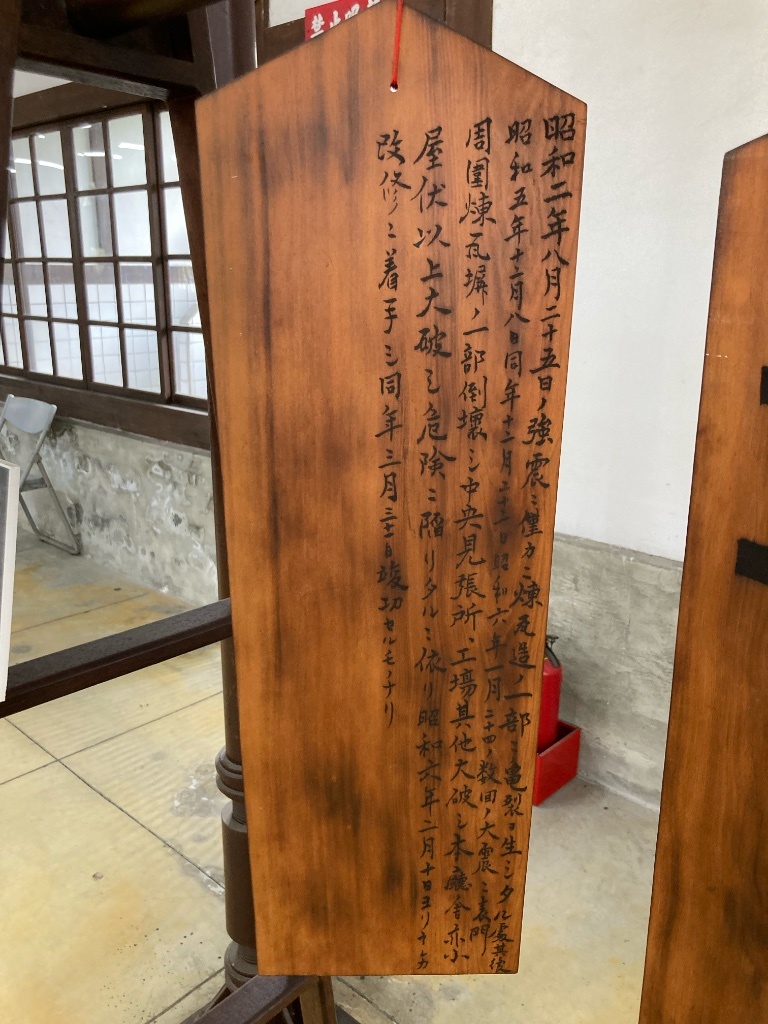 昭和二年八月二十五日ノ強震ニ僅カニ煉瓦造ノ一部ニ亀裂ヲ生シタル處其後
昭和五年十二月八日同年十二月二十二日昭和六年一月二十四ノ数回ノ大震ニ表門
周圍煉瓦塀ノ一部倒壊シ中央見張所、工場其他大破シ本廳舎亦小
屋伏以上大破シ危険ニ陥リタルニ依リ昭和六年二月十日ヨリ之カ
改修ニ着手シ同年三月三十一日竣功セルモノナリ